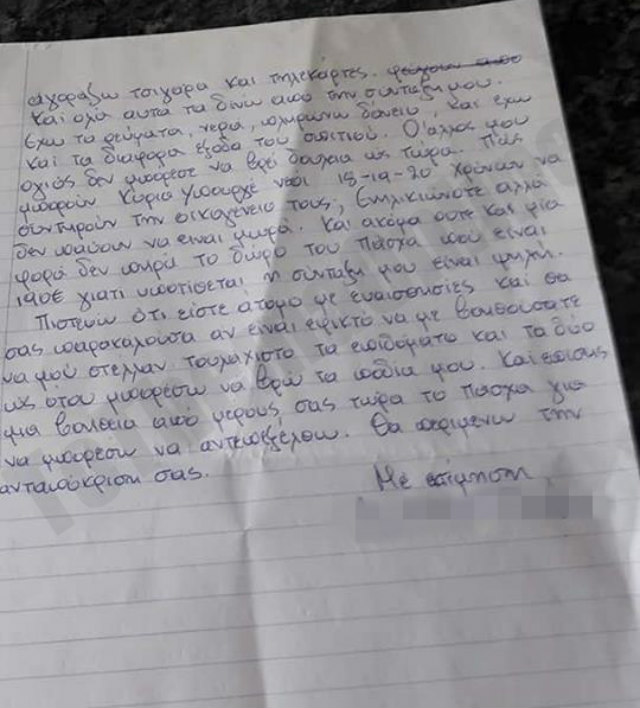 αγοράζω τσιγαρα και τηλεκάρτες. φεύγουν από
και ολα αυτα τα δινω από την συνταξη μου.
Εχω τα ρεύματα, νερα, πληρωνω δάνειο, και εχω
και τα διαφορα εξοδα του σπιτιου. Ο άλλος μου
ο γιός δεν μπορεσε να βρεί δουλεια ως τωρα. Πώς
μπορούν Κυριε Υπουργέ νεοι 18-19-20 Χρόνων να
συντηρούν την οικογένεια τους, Ενηλικιώνοτε αλλά
δεν παύουν να ειναι μωρά. Και ακόμα ουτε και μια
φορά δεν πηρά το δώρο του Πάσχα που είναι
190€ γιατι υποτίσεται η σύνταξη μου είναι ψηλή.
Πιστεύω ότι είστε άτομο με ευαισθησίες και θα
σας παρακαλουσα αν είναι εφικτό να με βοηθούσατε
να μού στέλλαν τουλάχιστο τα επιδόματα και τα δύο
ως οτου μπορέσω να βρω τα πόδια μου. Και επισης
μια βοηθεια από μερους σας τωρα το Πάσχα για
να μπορεσω να αντεπεξέλθω. Θα περιμενω την
ανταπόκριση σας.
Με εκτίμηση,